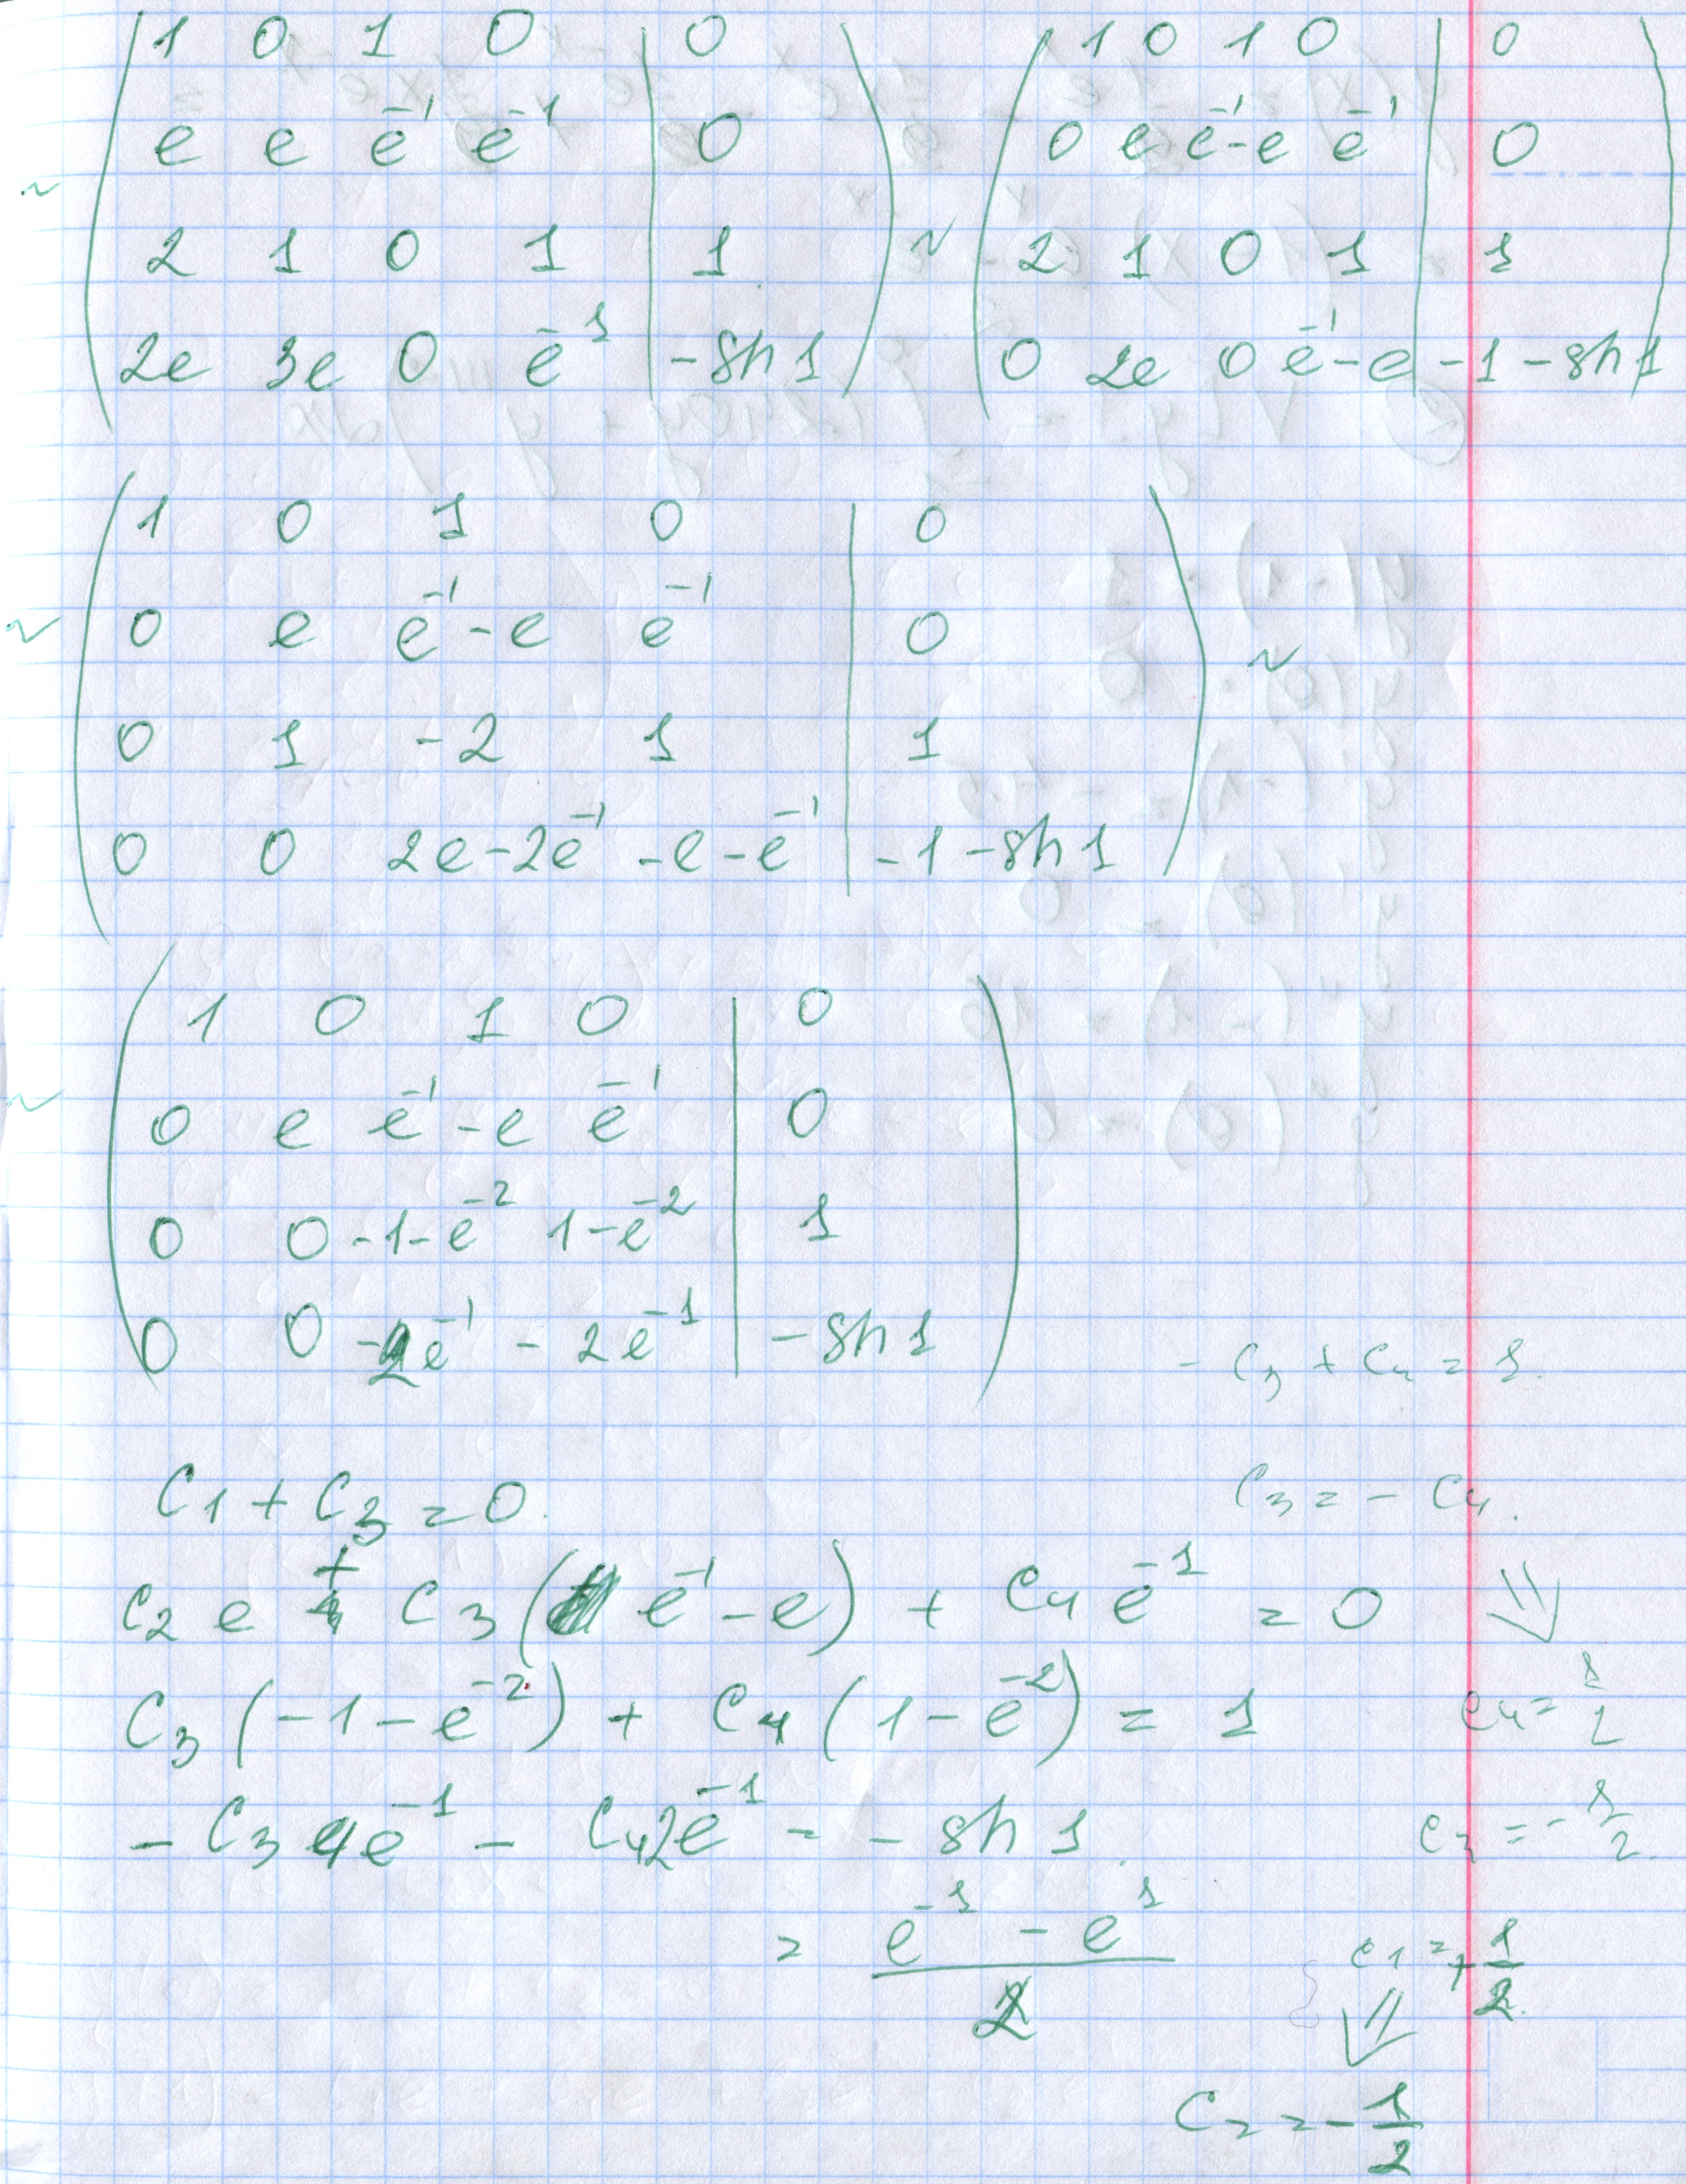 1 0 1 0 | 0 1 0 1 0 | 0
~ e e e⁻¹ e⁻¹ | 0 0 e e⁻¹-e e⁻¹ | 0
2 1 0 1 | 1 ~ 2 1 0 1 | 1
2e 3e 0 e⁻¹ | -sh1 0 2e 0 e⁻¹-e | -1-sh1
1 0 1 0 | 0
~ 0 e e⁻¹-e e⁻¹ | 0 ~
0 1 -2 1 | 1
0 0 2e-2e⁻¹ -e-e⁻¹ | -1-sh1
1 0 1 0 | 0
~ 0 e e⁻¹-e e⁻¹ | 0
0 0 -1-e⁻² 1-e⁻² | 1
0 0 -2e⁻¹ -2e⁻¹ | -sh1
-C₃+C₄=1.
C₁+C₃=0.
C₃=-C₄.
C₂e + C₃(e⁻¹-e) + C₄e⁻¹ = 0 ⇓
C₃(-1-e⁻²) + C₄(1-e⁻²) = 1
C₄=1/2
-C₃ e⁻¹ - C₄2e⁻¹ = -sh1.
C₃=-1/2.
= (e⁻¹-e¹)/2
C₁=+1/2.
⇓
C₂=-1/2